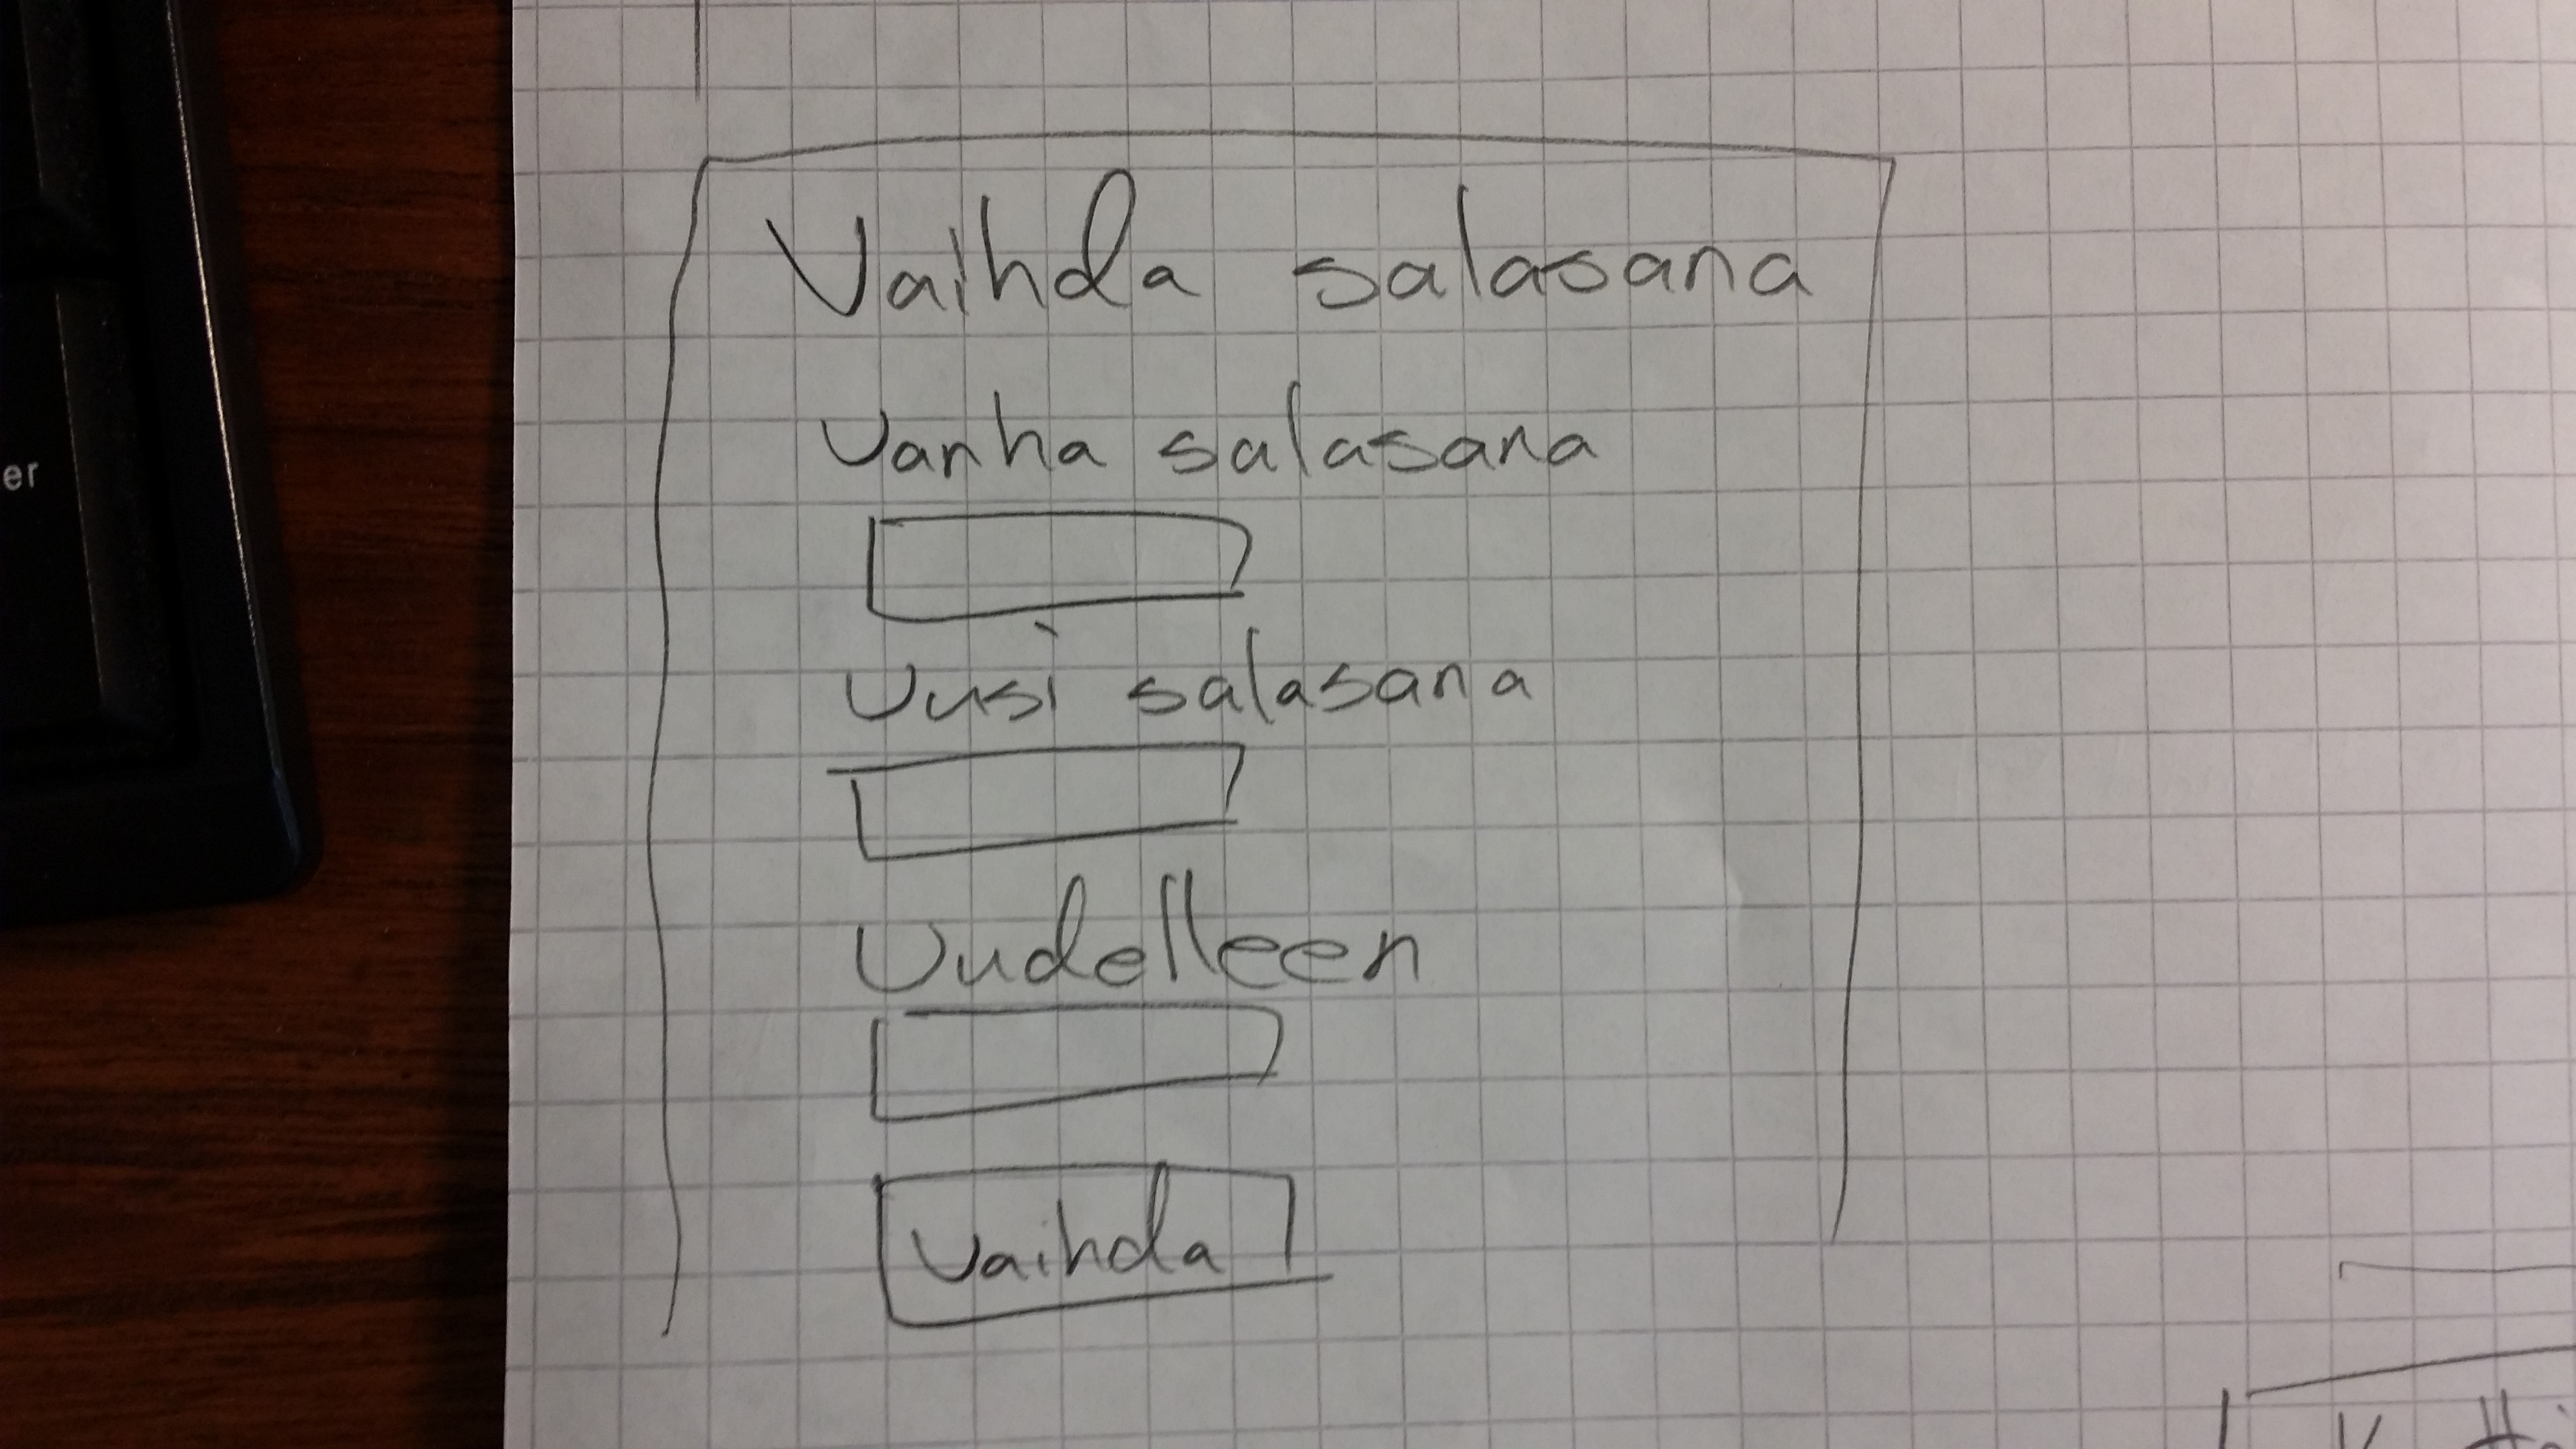 Vaihda salasana
Vanha salasana
Uusi salasana
Uudelleen
Vaihda
er